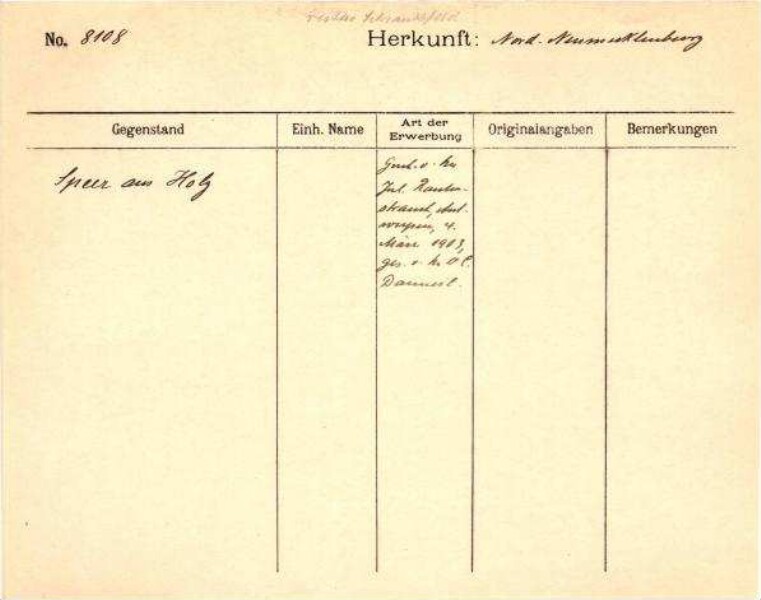 No. 8108
Herkunft: Nord-Neumecklenburg
Gegenstand
Einh. Name
Art der Erwerbung
Originalangaben
Bemerkungen
Speer aus Holz
Gesch. v. Hn
Jul. Rauten-
strauch, Ant-
werpen, 4.
März 1903,
ges. v. Hn O.